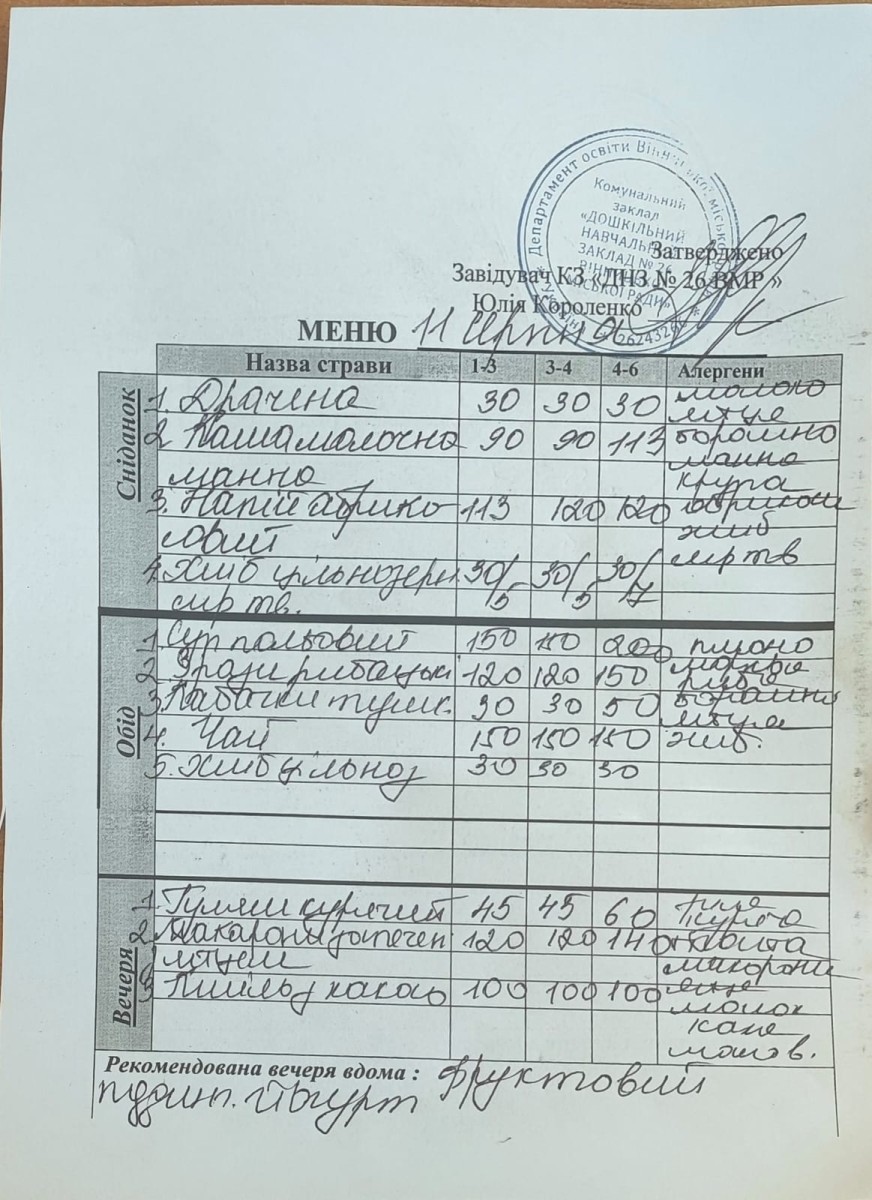 Департамент освіти Вінницької міської
Комунальний
заклад
«ДОШКІЛЬНИЙ
НАВЧАЛЬНИЙ
ЗАКЛАД № 26
МІСЬКОЇ РАДИ»
Затверджено
Завідувач КЗ «ДНЗ № 26 ВМР »
Юлія Короленко
МЕНЮ 11 серпня
Назва страви 1-3 3-4 4-6 Алергени
Сніданок
1. Драчена 30 30 30 молоко
яйце
2. Каша молочна 90 90 113 борошно
манна манна
крупа
3. Напій абрико 113 120 120
совий хліб
4. Хліб цільнозерн 30/5 30/5 30/7 сир тв
сир тв.
Обід
1. Суп польовий 150 150 200 пшоно
2. Зрази рибацькі 120 120 150 риба
3. Кабачки тушк. 30 30 50 борошно
яйця
4. Чай 150 150 150 хліб.
5. Хліб цільноз 30 30 30
Вечеря
1. Гуляш курячий 45 45 60 курята
2. Макарони запечен 120 120 140
яйцем макарони
3. Кисіль з какао 100 100 100 яйце
молок
какао
Рекомендована вечеря вдома : Фруктовий
пудинг. Йогурт